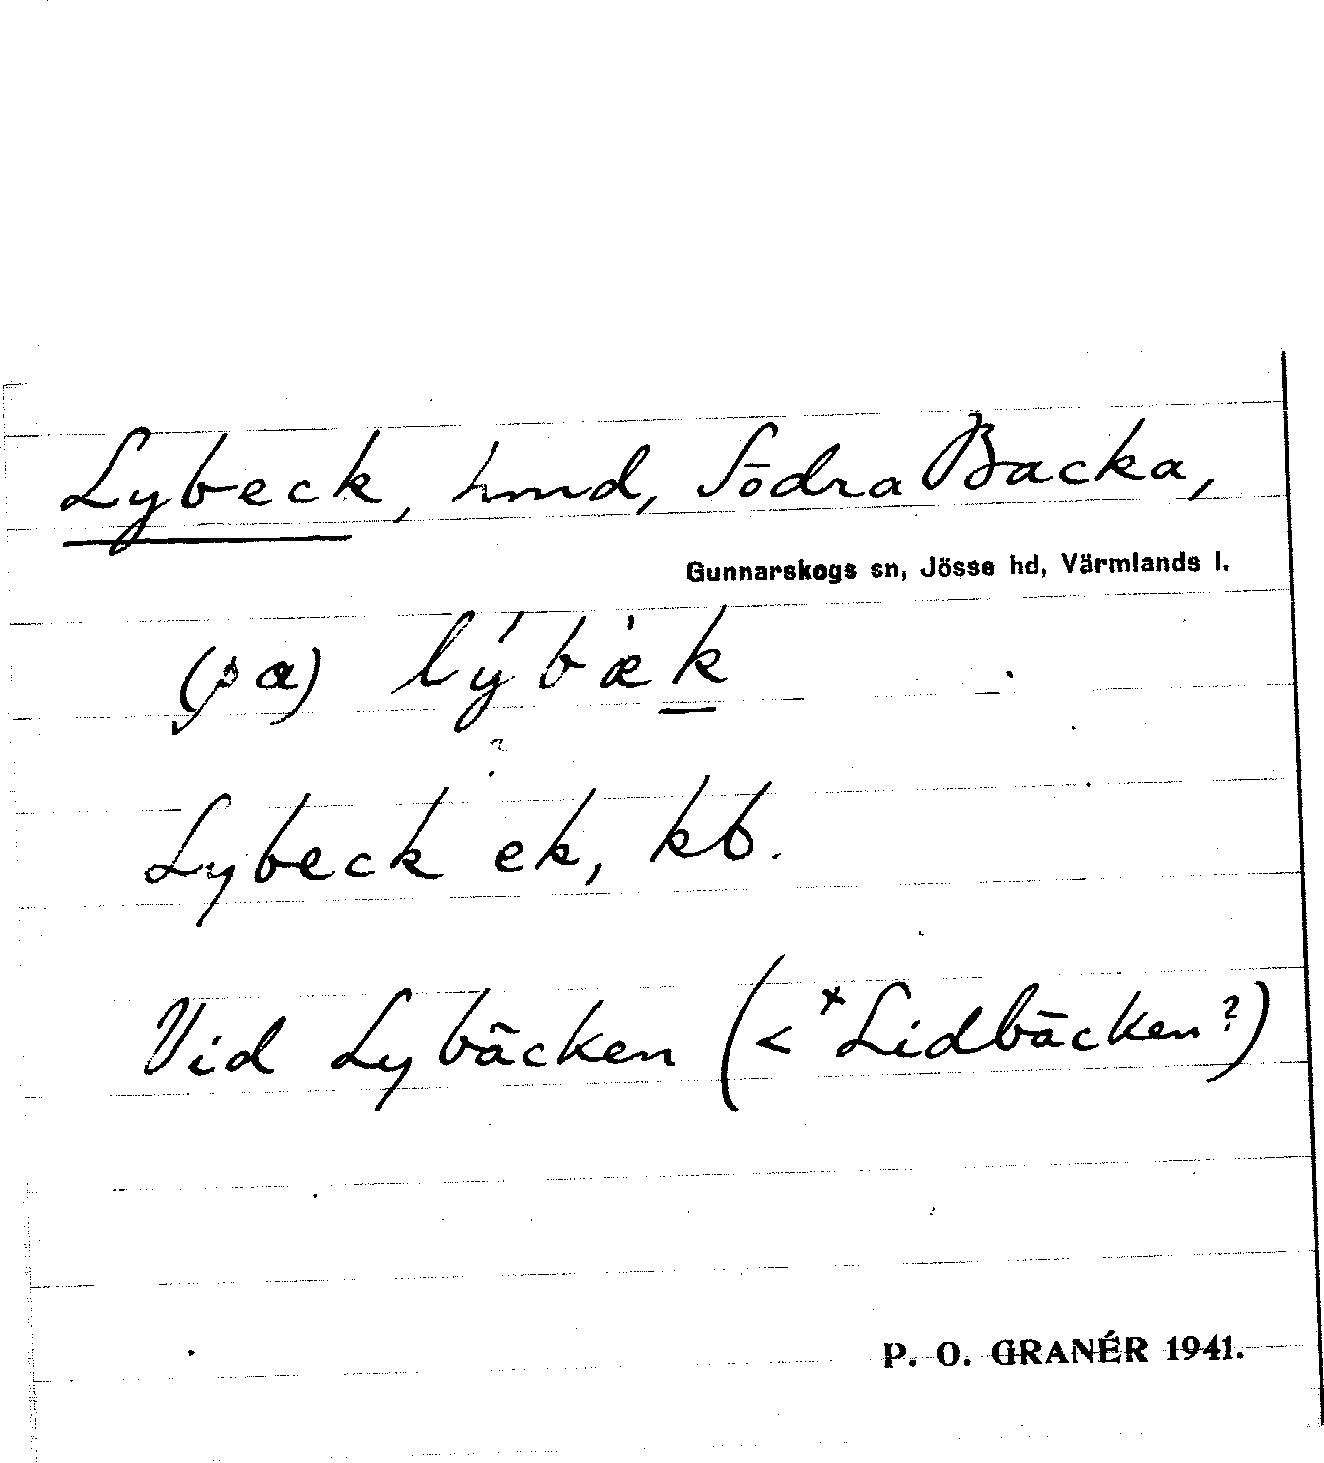 Lybeck, hmd, Södra Backa,
Gunnarskogs sn, Jösse hd, Värmlands l.
(pa) lýbæ̀k
Lybeck ek, kb.
Vid Lybäcken (< *Lidbäcken?)
P. O. GRANÉR 1941.